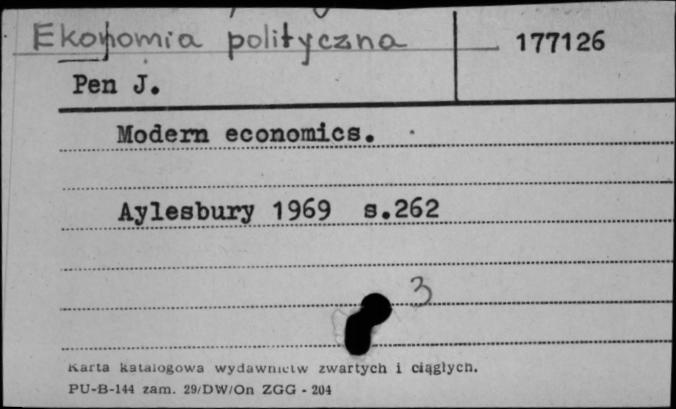 Ekonomia polityczna
177126
Pen J.
Modern economics.
Aylesbury 1969 s.262
3
Karta katalogowa wydawnictw zwartych i ciągłych.
PU-B-144 zam. 29/DW/On ZGG - 204